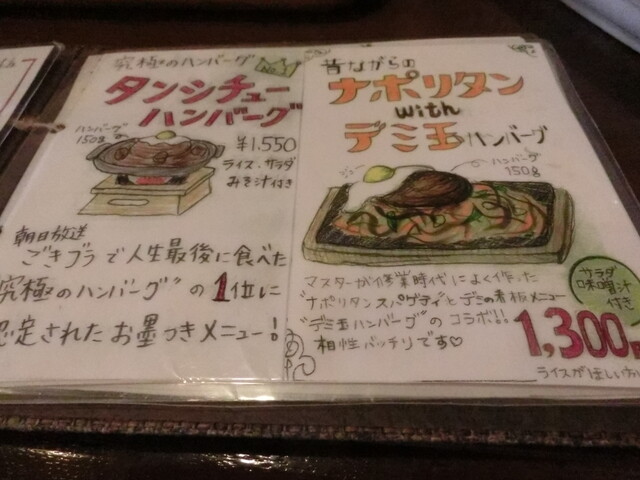 究極のハンバーグ
No.1
タンシチュー
ハンバーグ
ハンバーグ
150g
¥1,550
ライス、サラダ
みそ汁付き
朝日放送
ごきブラで人生最後に食べた
究極のハンバーグ"の1位に
認定されたお墨つきメニュー!
昔ながらの
ナポリタン
with
デミ玉ハンバーグ
ハンバーグ
150g
マスターが修業時代によく作った
"ナポリタンスパゲティ"とデミの看板メニュー
"デミ玉ハンバーグ"のコラボ!!
相性バッチリです♡
サラダ
味噌汁
付き
1,300円
ライスがほしい方は